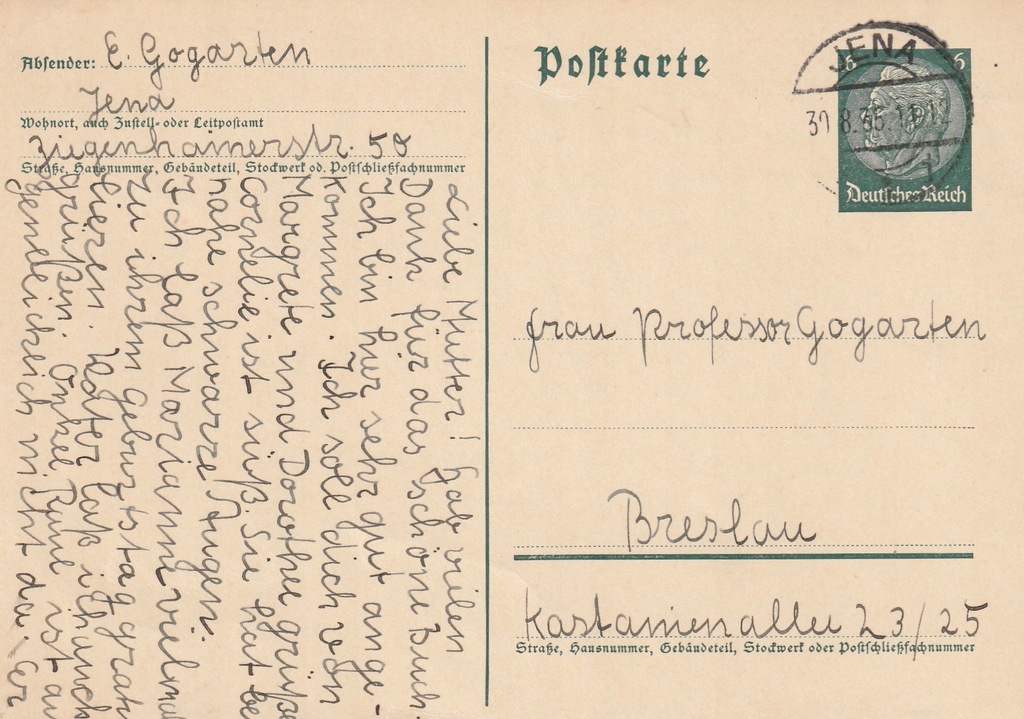 Absender: E. Gogarten
Jena
Wohnort, auch Zustell- oder Leitpostamt
Ziegenhainerstr. 58
Straße, Hausnummer, Gebäudeteil, Stockwerk od. Postschließfachnummer
Liebe Mutter! Hab vielen
Dank für das schöne Buch.
Ich bin hier sehr gut ange-
kommen. Ich soll dich von
Margrete und Dorothee grüße
Cornelie ist süß. Sie hat be
nahe schwarze Augen.
Ich laß Marianne vielma
zu ihrem Geburtstag gratu
lieren. Vater laß ich auch
grüßen. Onkel Rune ist au
genblicklich nicht da. Er
Postkarte
JENA
8.35. 11-12
6
6
Deutsches Reich
Frau Professor Gogarten
Breslau
Kastanienallee 23/25
Straße, Hausnummer, Gebäudeteil, Stockwerk oder Postschließfachnummer